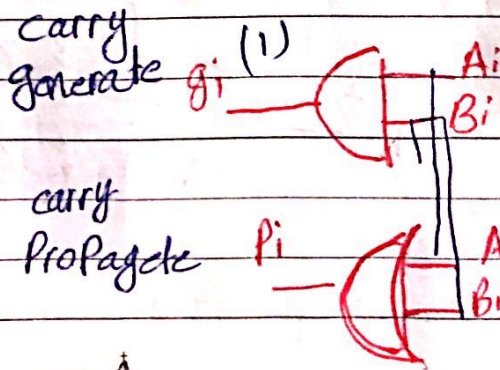 carry
generate gi (1) Ai
Bi
carry
Propagete Pi A
Bi